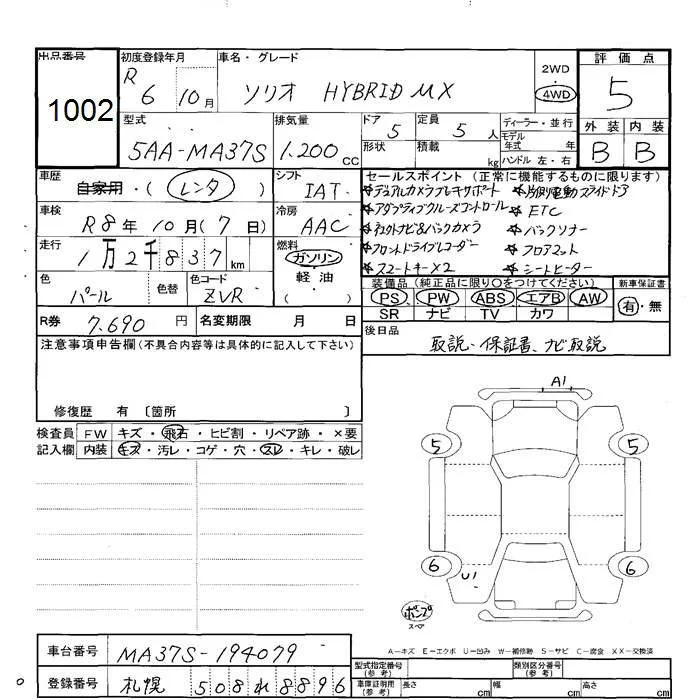 出品番号 1002
初度登録年月 R 6 10月
車名・グレード ソリオ HYBRID MX
2WD ・ 4WD
評価点 5
型式 5AA-MA37S
排気量 1.200cc
ドア 5
定員 5人
ディーラー・並行
モデル年式 年
形状
積載 kg
ハンドル 左・右
外装 内装
B B
車歴 自家用・(レンタ)
シフト IAT
車検 R8年10月(7日)
冷房 AAC
走行 1万2千837km
燃料 ガソリン 軽油 ( )
色 パール
色替
色コード ZVR
セールスポイント (正常に機能するものに限ります)
☆デュアルカメラブレーキサポート ☆両側電動スライドドア
☆アダプティブクルーズコントロール ☆ETC
☆ナビ&バックカメラ ☆バックソナー
☆フロントドライブレコーダー ☆フロアマット
☆スマートキー×2 ☆シートヒーター
装備品 (純正品に限り○をつけてください)
PS PW ABS エアB AW
SR ナビ TV カワ
新車保証書 有・無
R券 7.690円
名変期限 月 日
後日品 取説・保証書、ナビ取説
注意事項申告欄 (不具合内容等は具体的に記入して下さい)
修復歴 有 〔箇所 〕
検査員記入欄
FW キズ・飛石・ヒビ割・リペア跡・×要
内装 キズ・汚レ・コゲ・穴・スレ・キレ・破レ
A1
5 5
6 6
U1
ポンプ
スペア
A-キズ E-エクボ U-凹み W-補修跡 S-サビ C-腐食 XX-交換済
車台番号 MA37S-194079
登録番号 札幌 508れ8896
型式指定番号 (参考)
類別区分番号 (参考)
車庫証明用 (参考) 長さ cm 幅 cm 高さ cm